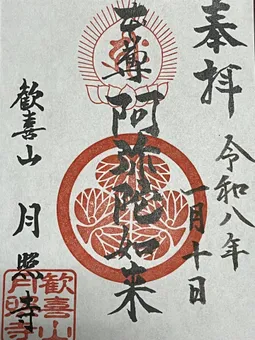 奉拝
令和八年
一月十日
本尊
阿弥陀如来
歓喜山 月照寺
歓喜山
月照寺